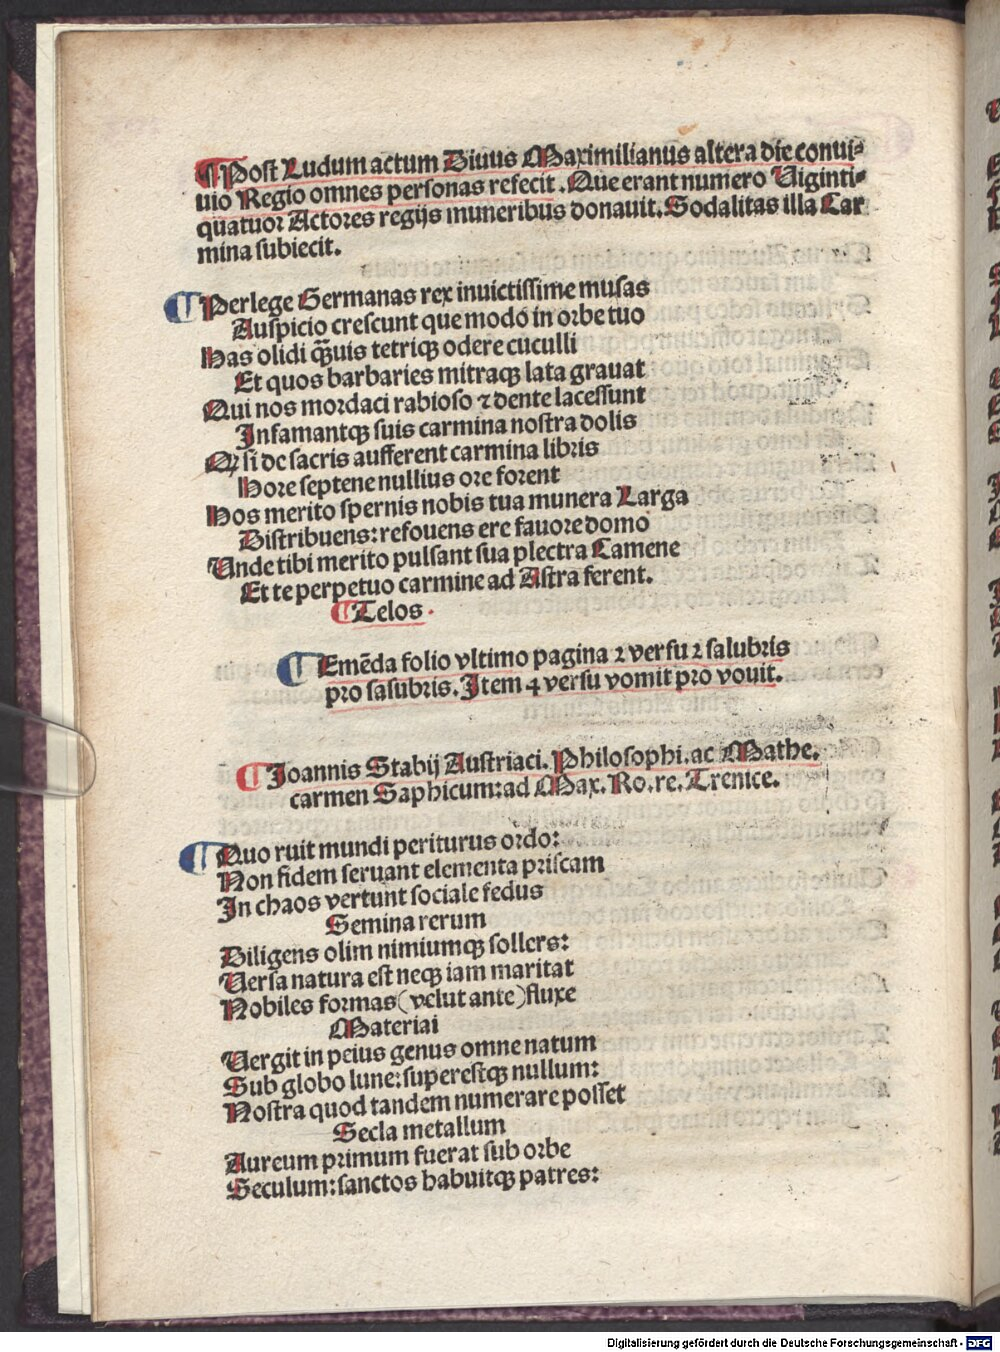 ¶Post Ludum actum Diuus Maximilianus altera die conui⸗
uio Regio omnes personas refecit. Que erant numero Viginti⸗
quatuor Actores regijs muneribus donauit. Sodalitas illa Car
mina subiecit.
¶Perlege Germanas rex inuictissime musas
Auspicio crescunt que modo in orbe tuo
Has olidi qȝuis tetriqȝ odere cuculli
Et quos barbaries mitraqȝ lata grauat
Qui nos mordaci rabioso ⁊ dente lacessunt
Infamantqȝ suis carmina nostra dolis
Qꝫ si de sacris aufferent carmina libris
Hore septene nullius ore forent
Hos merito spernis nobis tua munera Larga
Distribuens: refouens ere fauore domo
Unde tibi merito pulsant sua plectra Camene
Et te perpetuo carmine ad Astra ferent.
¶Telos.
¶Emēda folio vltimo pagina 2 versu 2 salubris
pro sasubris. Item 4 versu vomit pro vouit.
¶Joannis Stabij Austriaci. Philosophi. ac Mathe.
carmen Saphicum: ad Max. Ro. re. Trenice.
¶Quo ruit mundi periturus ordo:
Non fidem seruant elementa priscam
In chaos vertunt sociale fedus
Semina rerum
Diligens olim nimiumqȝ sollers:
Versa natura est neqȝ iam maritat
Nobiles formas (velut ante) fluxe
Materiai
Vergit in peius genus omne natum
Sub globo lune: superestqȝ nullum:
Nostra quod tandem numerare posset
Secla metallum
Aureum primum fuerat sub orbe
Seculum: sanctos habuitqȝ patres:
Digitalisierung gefördert durch die Deutsche Forschungsgemeinschaft - DFG